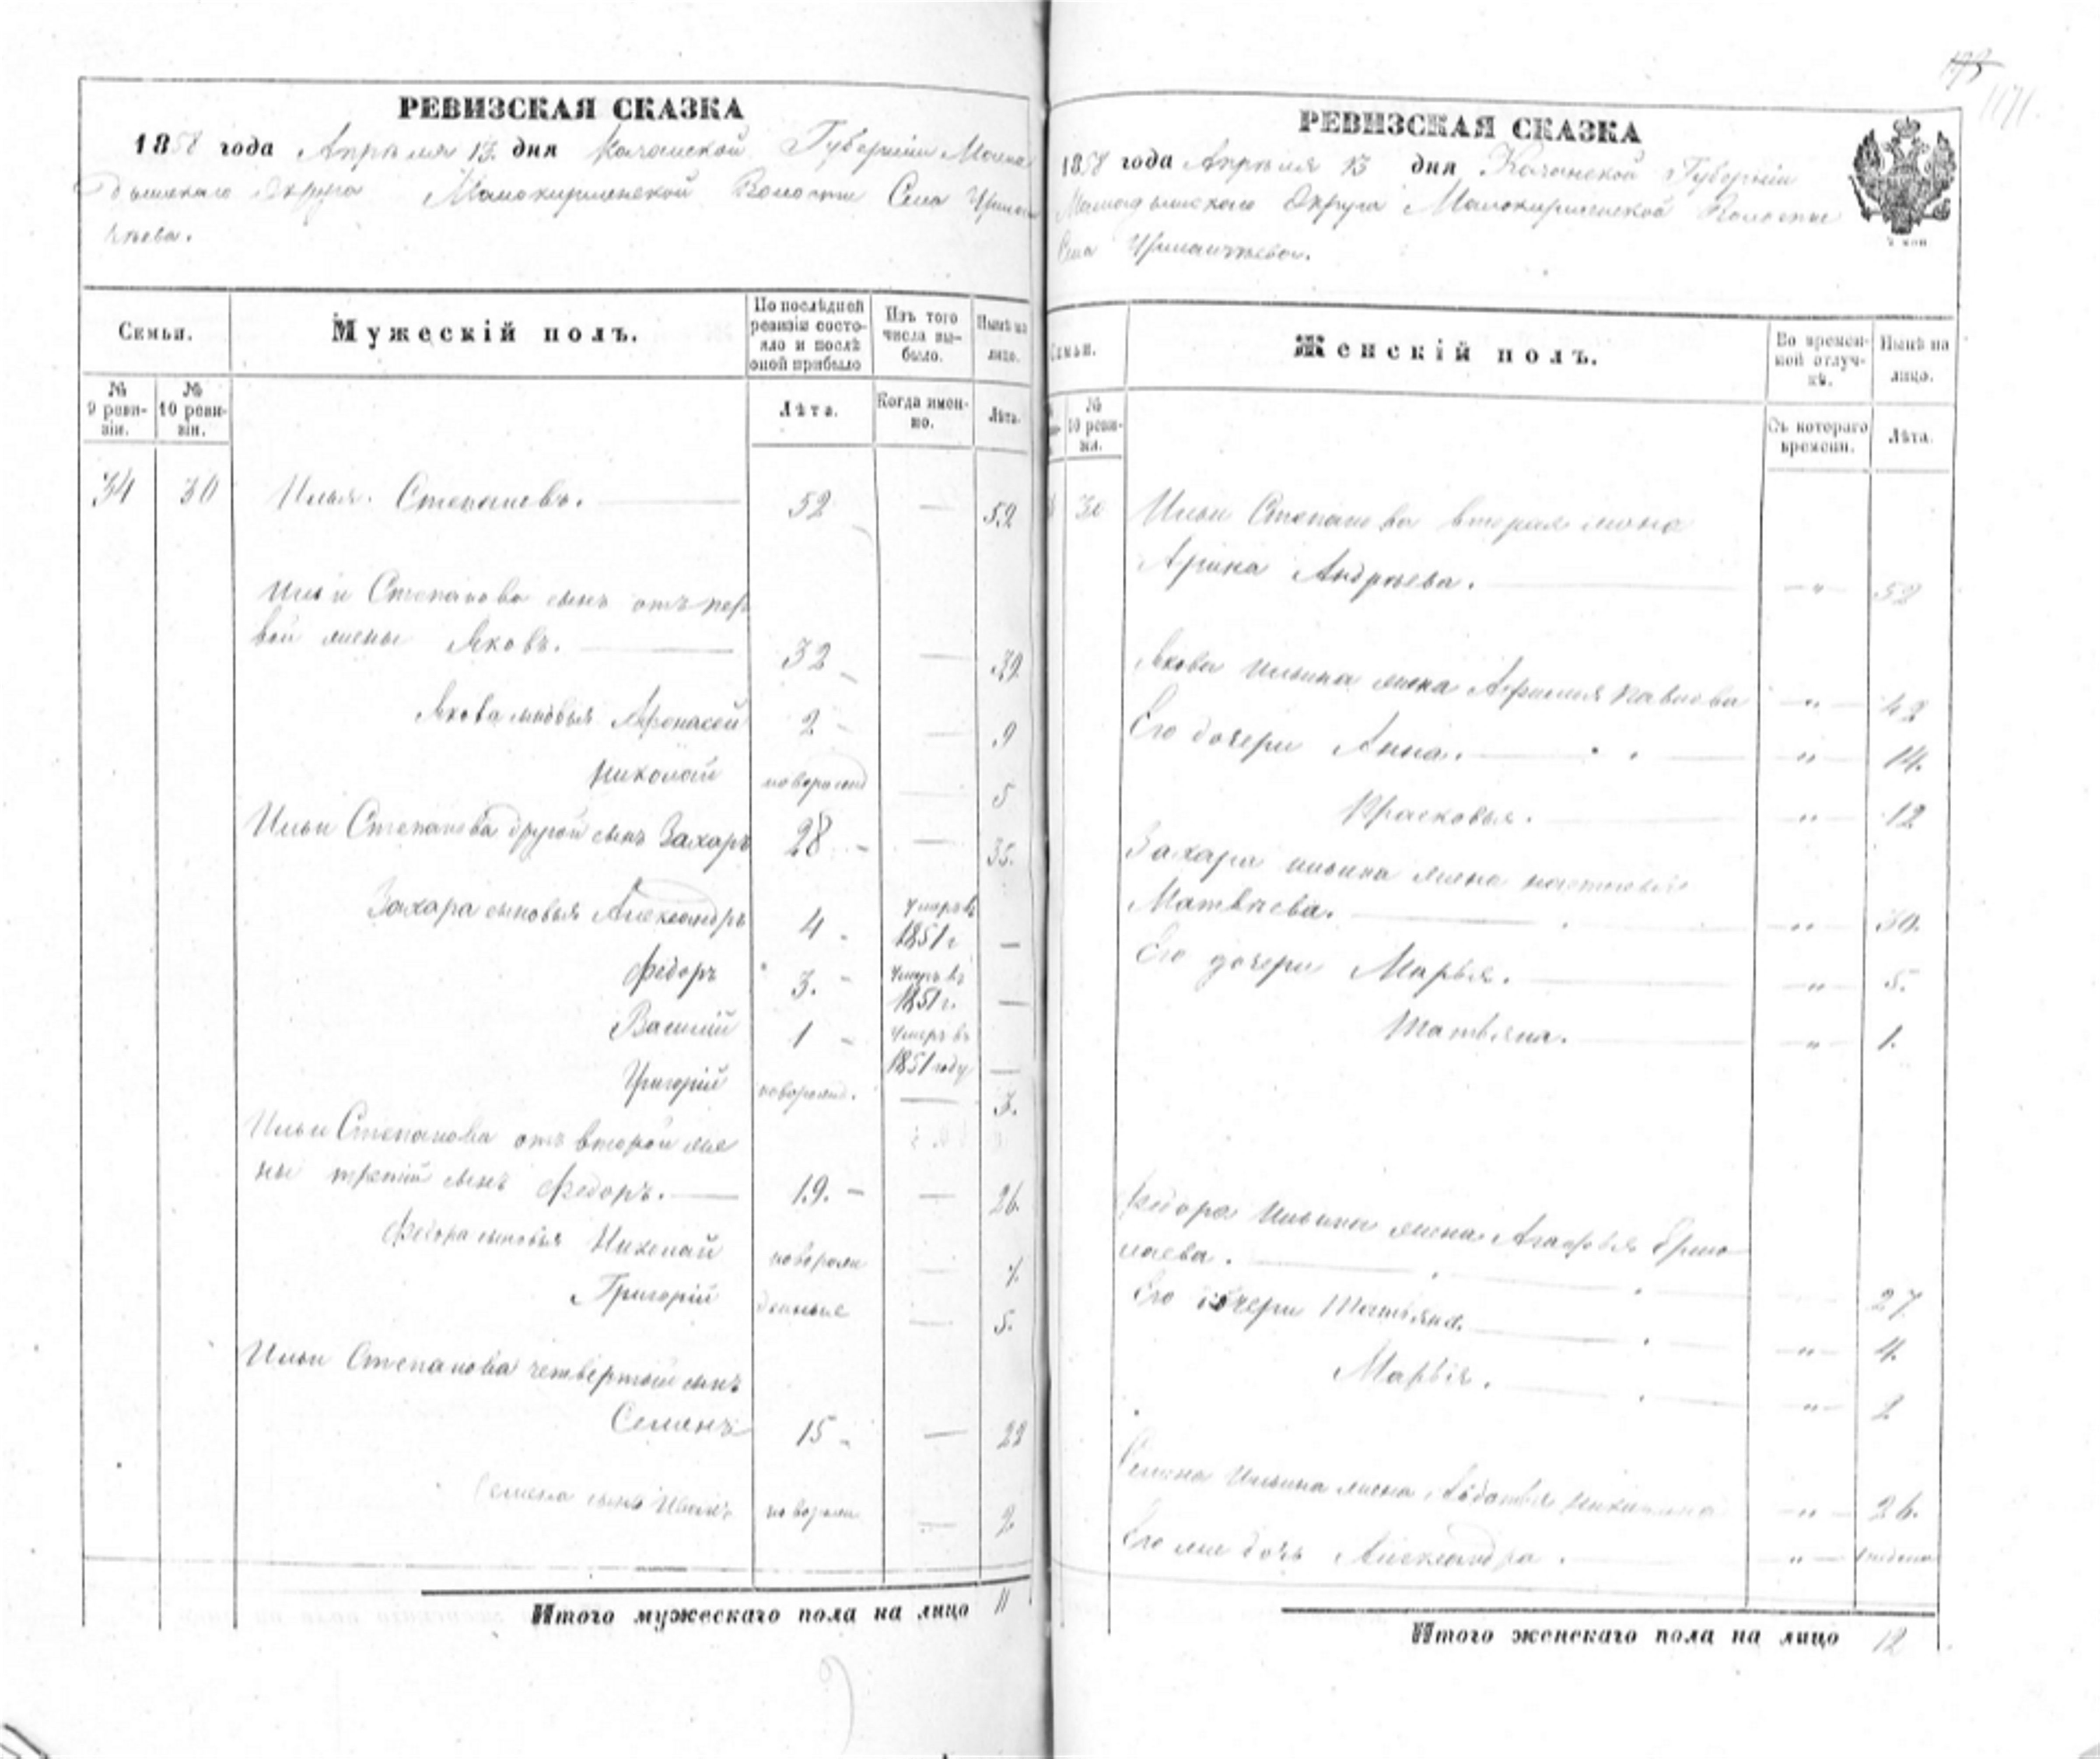 РЕВИЗСКАЯ СКАЗКА
1858 года Апрѣля 13 дня Казанской Губерніи Мама
дышскаго Округа Мамокирменской Волости Села Урман
чѣева.
Семьи.
Мужескій полъ.
По послѣдней
ревизіи состо-
яло и послѣ
оной прибыло
Изъ того
числа вы-
было.
Нынѣ на
лицо.
№
9 реви-
зіи.
№
10 реви-
зіи.
Лѣта.
Когда имен-
но.
Лѣта.
34 30 Илья Степановъ. 52 — 59
Ильи Степанова сынъ отъ пер
вой жены Яковъ. 32 — 39
Якова сыновья Афонасей 2 — 9
Николай новорожд — 5
Ильи Степанова другой сынъ Захаръ 28 — 35.
Захара сыновья Александръ 4 умеръ въ 1851 г —
Федоръ 3. умеръ въ 1851 г. —
Василій 1 умеръ въ 1851 году —
Григорій новорожд. — 3.
Ильи Степанова отъ второй же
ны третій сынъ Федоръ. 19. — 26.
Федора сыновья Николай новорож — 7.
Григорій денные — 5.
Ильи Степанова четвертый сынъ
Семенъ 15 — 22
Семена сынъ Иванъ новорож — 2
Итого мужескаго пола на лицо 11
171
РЕВИЗСКАЯ СКАЗКА
1858 года Апрѣля 13 дня Казанской Губерніи
Мамадышскаго Округа Мамокирменской Волости
Села Урманчѣева.
Семьи.
Женскій полъ.
Во времен-
ной отлуч-
кѣ.
Нынѣ на
лицо.
№
10 реви-
зіи.
Съ котораго
времени.
Лѣта.
30 Ильи Степанова вторая жена
Арина Андрѣева. — „ — 52
Якова Ильина жена Афимия Павлова — „ — 42
Его дочери Анна. „ 14.
Прасковья. „ 12
Захара Ильина жена Настасья
Матвѣева. — „ — 30.
Его дочери Марья. — „ — 5.
Татьяна. — „ — 1.
Федора Ильина жена Агафья Ермо
лаева. 27
Его дочери Татьяна. — „ — 4.
Марья. — „ — 2
Семена Ильина жена Авдотья Никитина — „ — 26.
Его же дочь Александра. „ —
Итого женскаго пола на лицо 12